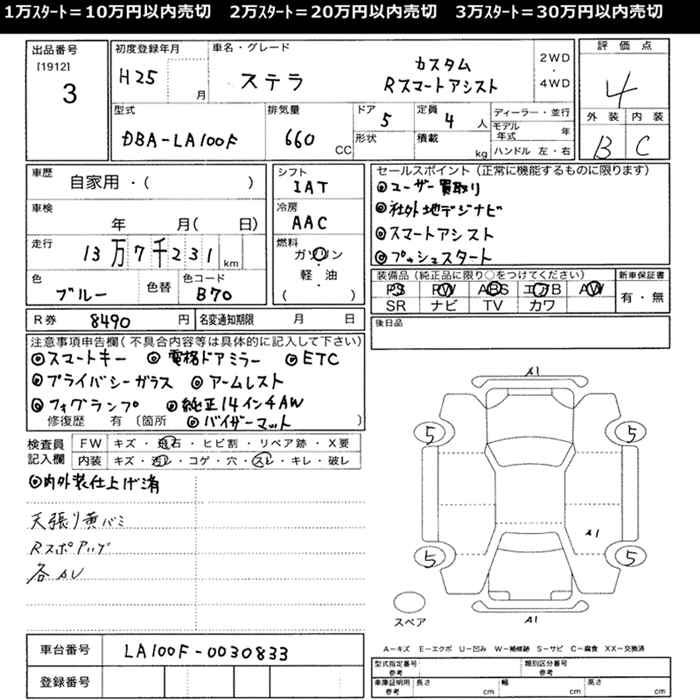 1万ｽﾀｰﾄ＝10万円以内売切　2万ｽﾀｰﾄ＝20万円以内売切　3万ｽﾀｰﾄ＝30万円以内売切
出品番号
[1912]
3
初度登録年月
H25
月
車名・グレード
ステラ
カスタム
Rスマートアシスト
2WD
・
4WD
評価点
4
外装 内装
B C
型式
DBA-LA100F
排気量
660
CC
ドア
5
形状
定員
4 人
積載
kg
ディーラー・並行
モデル年式 年
ハンドル 左・右
車歴
自家用・( )
車検
年 月( 日)
走行
13万7千231 km
色
ブルー
色替
色コード
B70
シフト
IAT
冷房
AAC
燃料
ガソリン
・
軽・油
( )
セールスポイント（正常に機能するものに限ります）
◎ユーザー買取り
◎社外地デジナビ
◎スマートアシスト
◎プッシュスタート
装備品（純正品に限り○をつけてください）
PS PW ABS エアB AW
SR ナビ TV カワ
新車保証書
有・無
R券 8490 円 名変通知期限 月 日
後日品
注意事項申告欄（不具合内容等は具体的に記入して下さい）
◎スマートキー ◎電格ドアミラー ◎ETC
◎プライバシーガラス ◎アームレスト
◎フォグランプ ◎純正14インチAW
修復歴 有（箇所 ◎バイザーマット ）
検査員
記入欄
FW キズ・飛石・ヒビ割・リペア跡・X要
内装 キズ・汚レ・コゲ・穴・スレ・キレ・破レ
◎内外装仕上げ済
天張り黄バミ
Rスポアリグ
各AU
A1
5 5
A1
5 5
スペア
A1
車台番号 LA100F-0030833
登録番号
A－キズ E－エクボ U－凹み W－補修跡 S－サビ C－腐食 XX－交換済
型式指定番号
参考
類別区分番号
参考
車庫証明用
参考
長さ cm 幅 cm 高さ cm